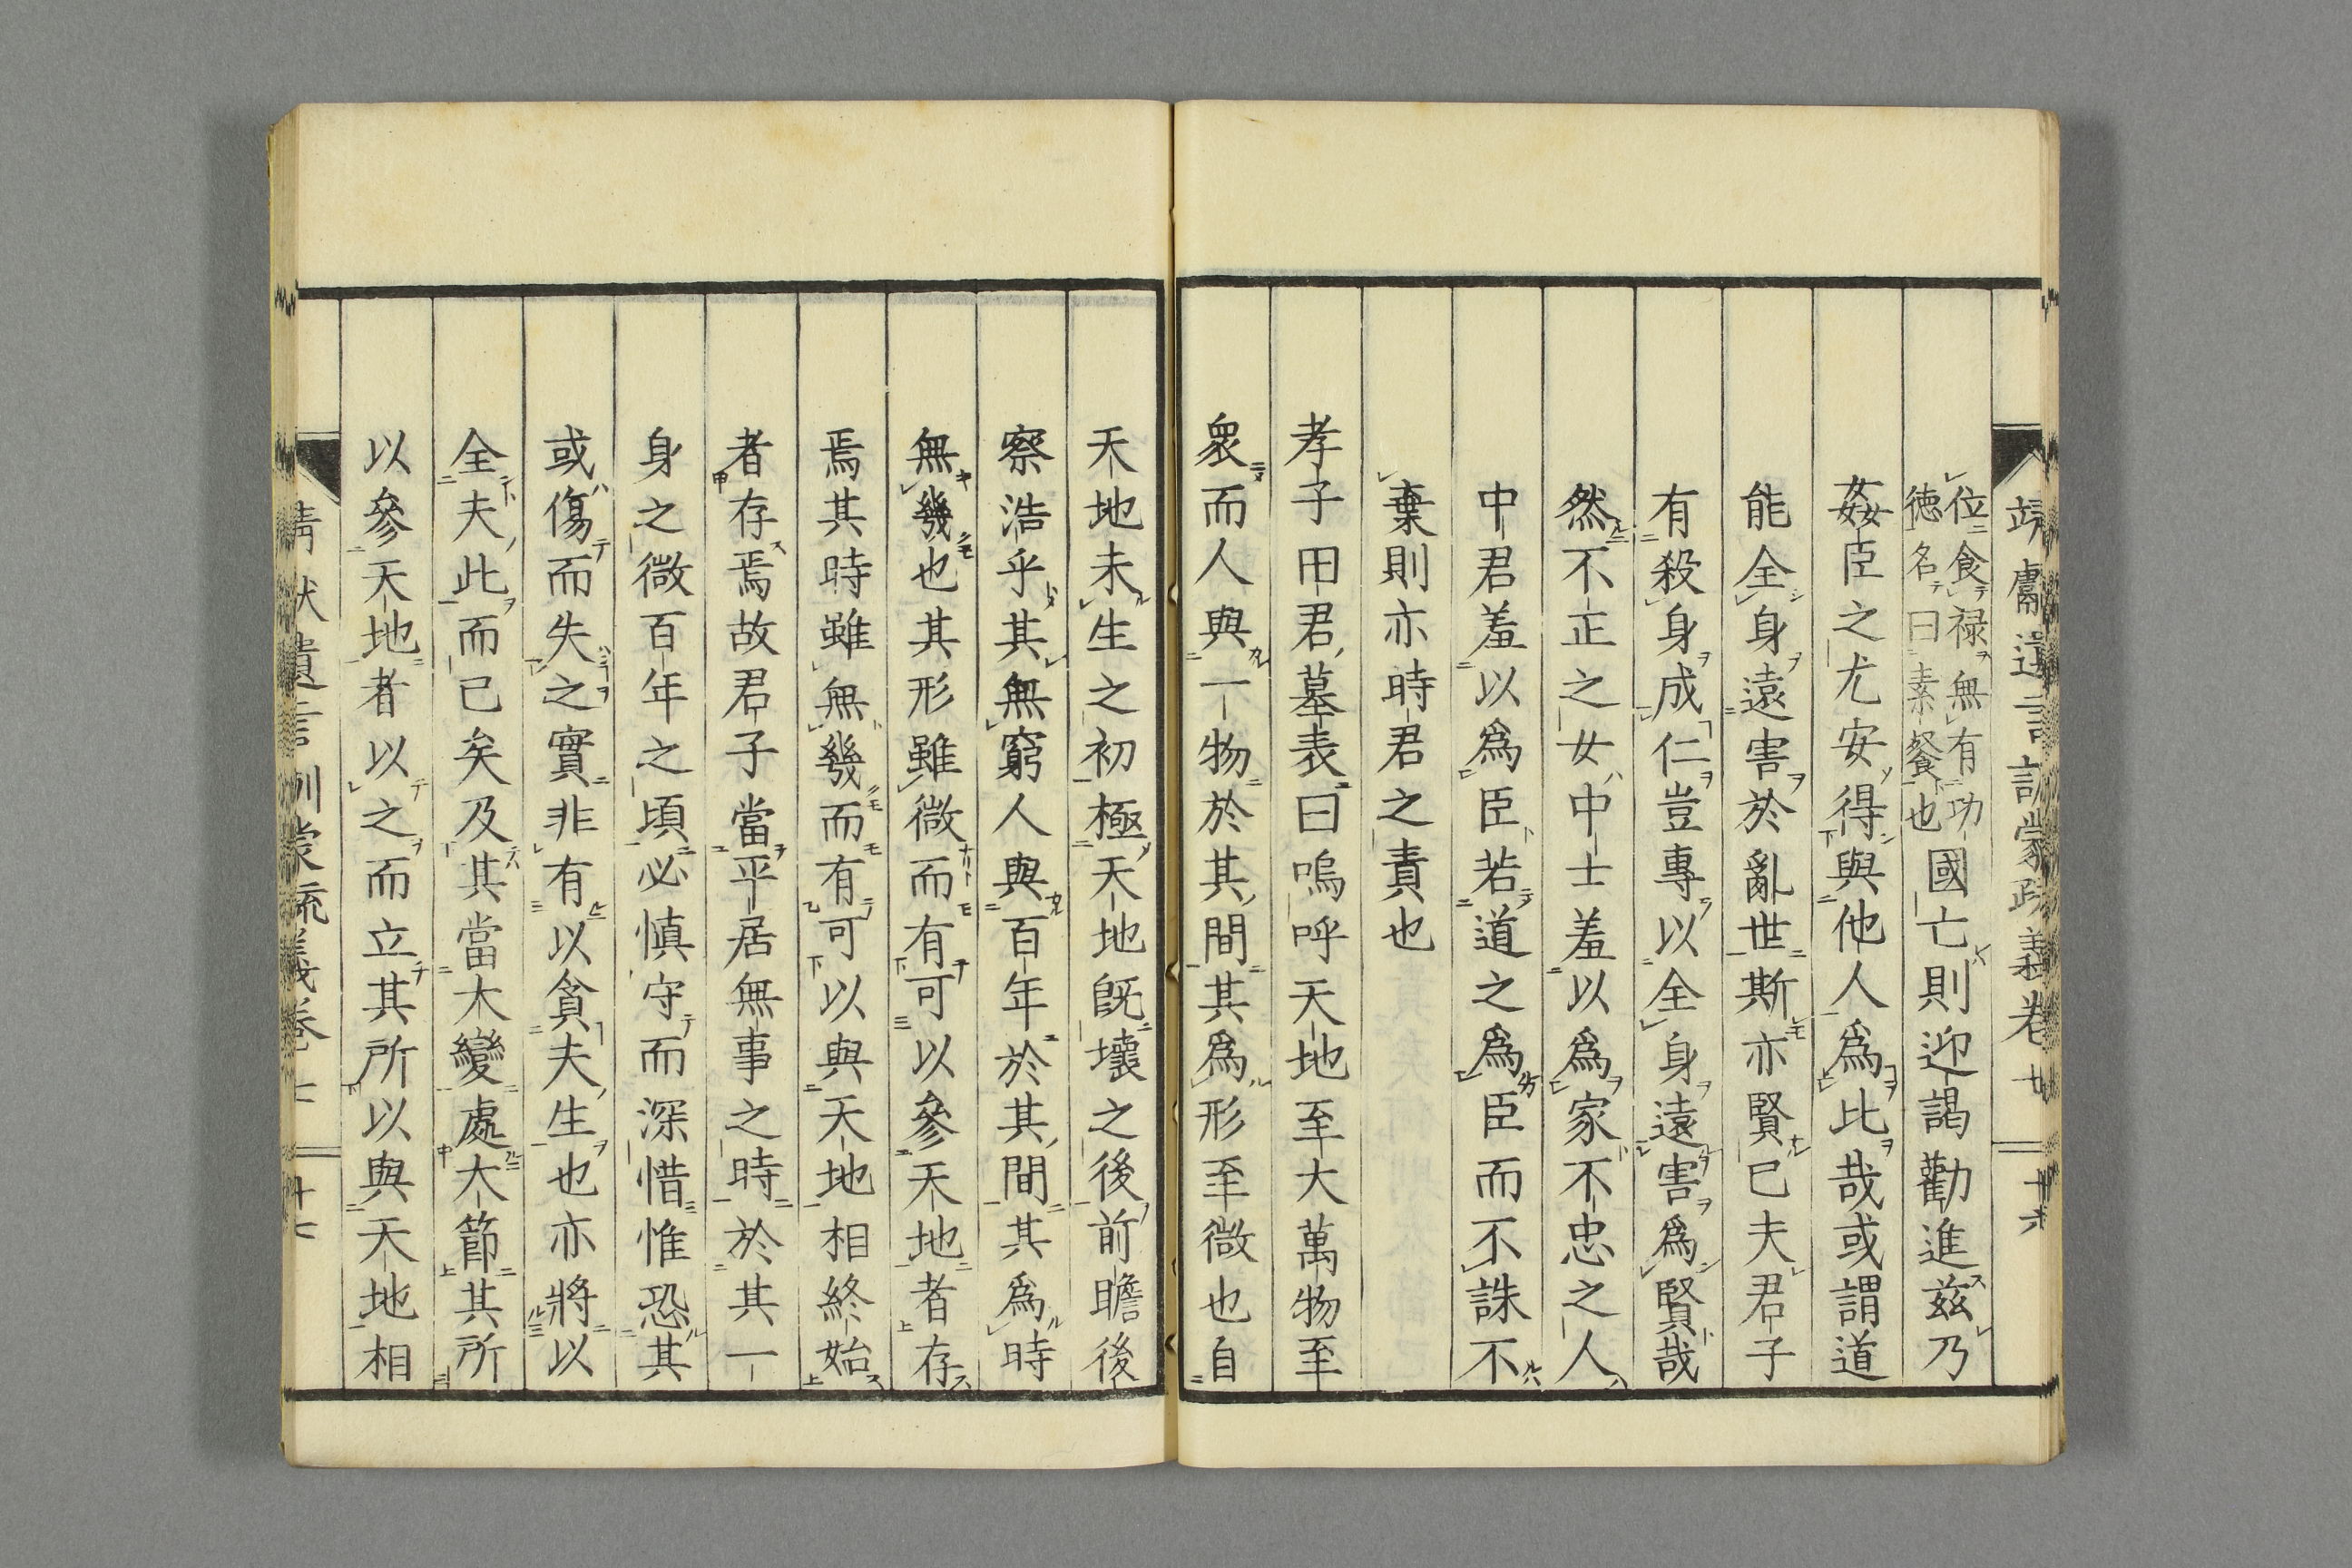 靖獻遺言訓蒙疏義卷
位食祿無有功
德名曰素餐也國亡則迎謁勸進茲乃
姦臣之尤安得與他人爲比哉或謂道
能全身遠害於亂世斯亦賢已夫君子
有殺身成仁豈專以全身遠害爲賢哉
然不正之女中士羞以爲家不忠之人
中君羞以爲臣若道之爲臣而不誅不
棄則亦時君之責也
孝子田君墓表曰嗚呼天地至大萬物至
衆而人與一物於其間其爲形至微也自
天地未生之初極天地既壞之後前瞻後
察浩乎其無窮人與百年於其間其爲時
無幾也其形雖微而有可以參天地者存
焉其時雖無幾而有可以與天地相終始
者存焉故君子當平居無事之時於其一
身之微百年之頃必慎守而深惜惟恐其
或傷而失之實非有以貪夫生也亦將以
全夫此而已矣及其當大變處大節其所
以參天地者以之而立其所以與天地相
十七